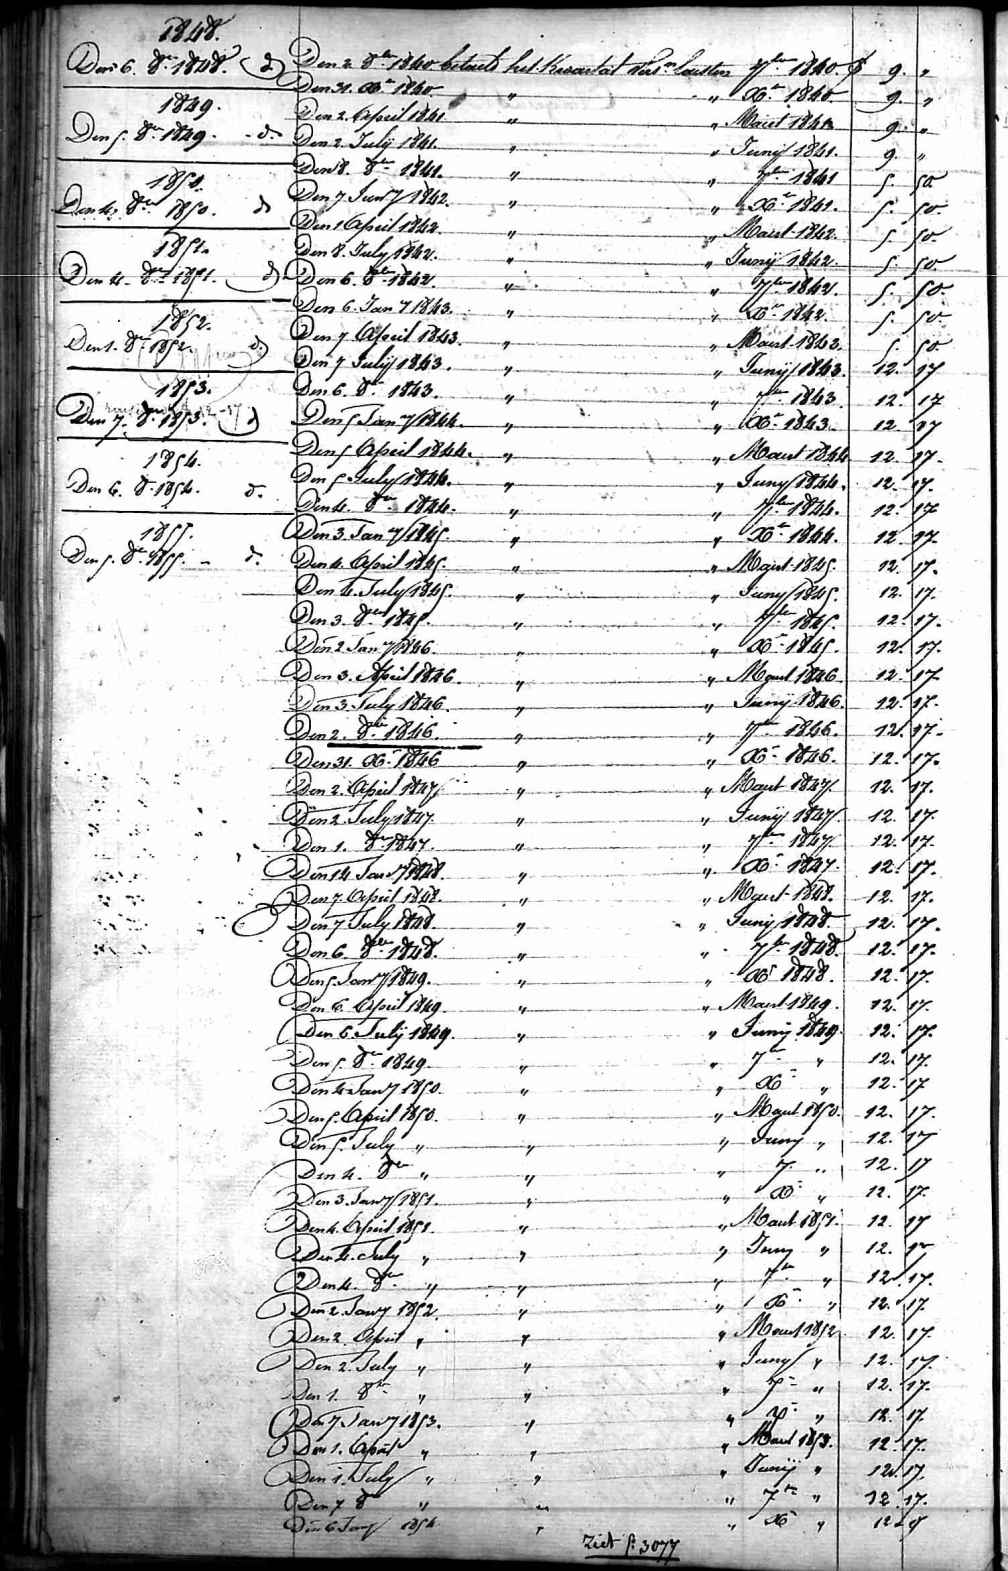 1848.
Den 6. 8br 1848. d
1849.
Den 5. 8br 1849. - d.
1850.
Den 4. 8br 1850. d
1851.
Den 4. 8br 1851. d
1852.
Den 1. 8br 1852. d
1853.
Den 7. 8br 1853. d
1854.
Den 6. 8br 1854. d.
1855.
Den 5. 8br 1855. - d.
Den 2. 8br 1840 betaelt het Kwartael 7ber 1840. f 9. "
Den 31. Xr 1840 " " Xr 1840 9. "
Den 2. April 1841 " " Maert 1841 9. "
Den 2. July 1841. " " Junij 1841. 9. "
Den 8. 8br 1841. " " 7br 1841 5. 50
Den 7 Jany 1842. " " Xr 1841. 5. 50.
Den 1 April 1842 " " Maert 1842. 5 50.
Den 8. July 1842. " " Junij 1842. 5 50
Den 6. 8br 1842. " " 7ber 1842. 5. 50.
Den 6. Jany 1843. " " Xr 1842. 5. 50.
Den 7 April 1843. " " Maert 1843. 5. 50
Den 7 July 1843. " " Junij 1843. 12. 17
Den 6. 8r 1843. " " 7ber 1843 12. 17
Den 5 Jany 1844. " " Xr 1843. 12. 17
Den 5 April 1844. " " Maert 1844 12. 17.
Den 5 July 1844. " " Juny 1844. 12. 17.
Den 4. 8br 1844. " " 7ber 1844. 12. 17
Den 3. Jany 1845. " " Xr 1844. 12. 17
Den 4. April 1845. " " Maert 1845. 12. 17.
Den 4. July 1845. " " Juny 1845. 12. 17.
Den 3. 8br 1845. " " 7ber 1845. 12. 17.
Den 2 Jany 1846. " " Xr 1845. 12. 17.
Den 3. April 1846. " " Maert 1846. 12. 17
Den 3. July 1846. " " Junij 1846. 12. 17.
Den 2. 8br 1846. " " 7br 1846. 12. 17.
Den 31. Xr 1846 " " Xr 1846. 12. 17.
Den 2. April 1847. " " Maert 1847. 12. 17.
Den 2 July 1847. " " Junij 1847. 12. 17.
Den 1. 8br 1847. " " 7ber 1847. 12. 17.
Den 14 Jany 1848. " " Xr 1847. 12. 17.
Den 7. April 1848. " " Maert 1848. 12. 17.
Den 7 July 1848. " " Junij 1848. 12. 17.
Den 6. 8ber 1848. " " 7br 1848. 12. 17.
Den 5. Jany 1849. " " Xr 1848. 12. 17.
Den 6. April 1849. " " Maert 1849. 12. 17.
Den 6. July 1849. " " Junij 1849. 12. 17.
Den 5. 8br 1849 " " 7br " 12. 17.
Den 4 Jany 1850. " " Xr " 12. 17
Den 5. April 1850. " " Maert 1850. 12. 17.
Den 5. July " " " Juny " 12. 17
Den 4. 8br " " " 7. " 12. 17
Den 3. Jany 1851. " " Xr " 12. 17.
Den 4. April 1851. " " Maert 1851. 12. 17
Den 4. July " " " Juny " 12. 17
Den 4. 8br " " " 7br " 12. 17.
Den 2. Jany 1852. " " Xr " 12. 17
Den 2. April " " " Maert 1852 12. 17.
Den 2. July " " " Juny " 12. 17.
Den 1. 8br " " " 7r " 12. 17.
Den 7 Jany 1853. " " Xr " 12. 17
Den 1. April " " " Maert 1853. 12. 17.
Den 1. July " " " Junij " 12. 17.
Den 7 8 " " " 7br " 12. 17.
Den 6 Jany 1854. " " Xr "
Ziet f. 3077